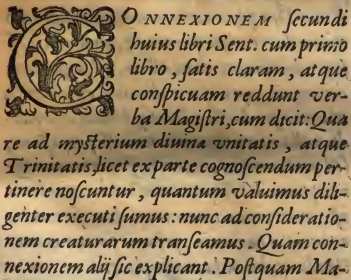 CONNEXIONEM secundi
huius libri Sent. cum primo
libro, satis claram, atque
conspicuam reddunt ver-
ba Magistri, cum dicit: Qua
re ad mysterium diuinæ vnitatis, atque
Trinitatis, licet ex parte cognoscendum per-
tinere noscuntur, quantum valuimus dili-
genter executi sumus: nunc ad consideratio-
nem creaturarum transeamus. Quam con-
nexionem alij sic explicant. Postquam Ma-